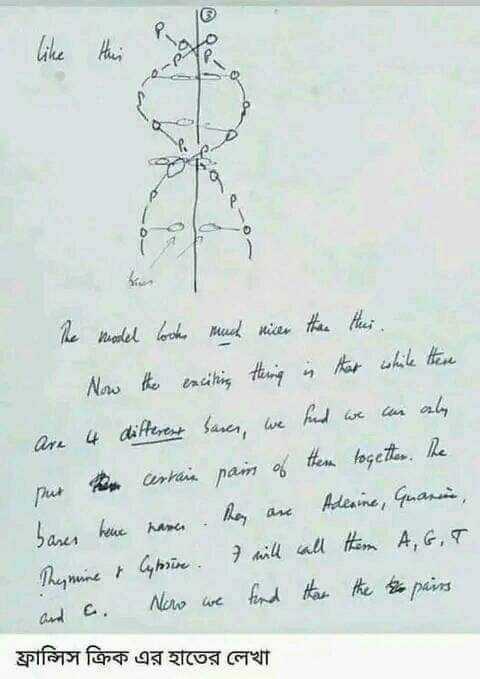 ③
like this
P P P
P P
P P
P P
bases
The model looks much nicer than this.
Now the exciting thing is that while there
are 4 different bases, we find we can only
put certain pairs of them together. The
bases have names. They are Adenine, Guanine,
Thymine & Cytosine. I will call them A, G, T
and C. Now we find that the pairs
ফ্রান্সিস ক্রিক এর হাতের লেখা